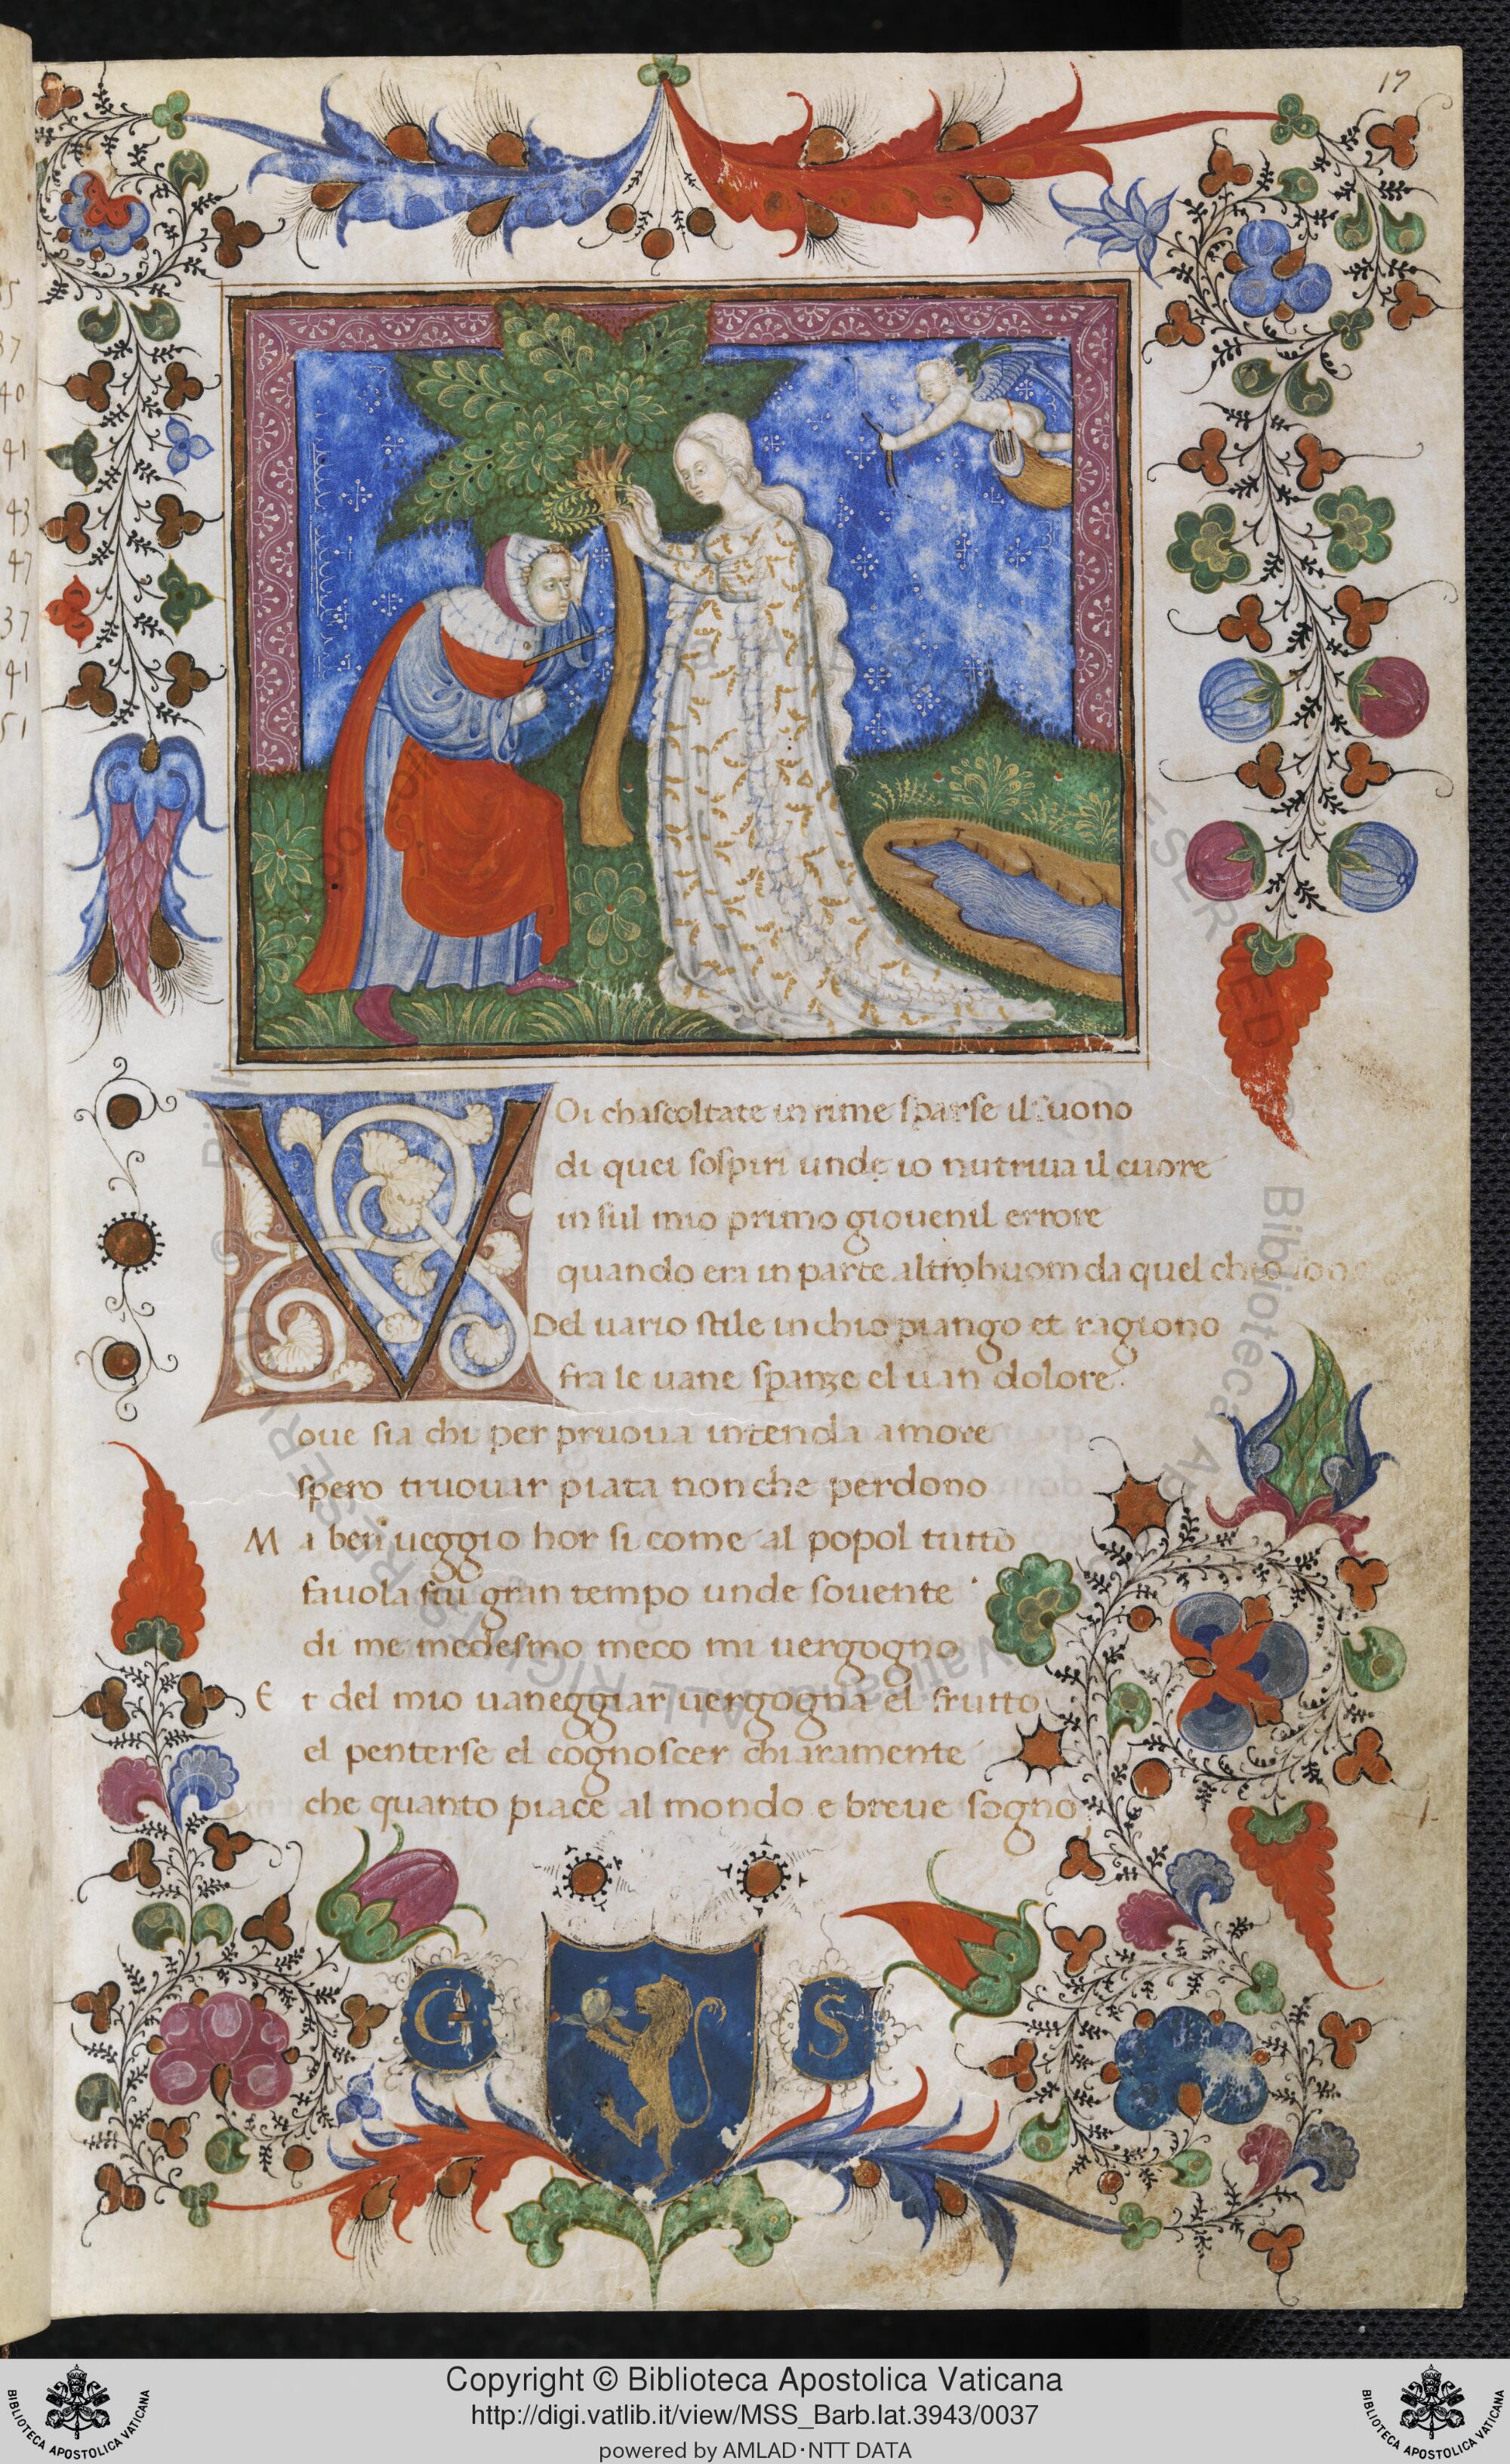 17
35
37
40
41
43
47
37
41
51
VOi chascoltate in rime sparse il suono
di quei sospiri unde io nutriua il cuore
in sul mio primo giouenil errore
quando era in parte altrohuom da quel chio sono
Del uario stile in chio piango et ragiono
fra le uane spanze el uan dolore
oue sia chi per pruoua intenda amore
spero truouar piata non che perdono
Ma ben ueggio hor si come al popol tutto
fauola fui gran tempo unde souente
di me medesmo meco mi uergogno
Et del mio uaneggiar uergogna el frutto
el penterse el cognoscer chiaramente
che quanto piace al mondo e breue sogno
G S
Copyright © Biblioteca Apostolica Vaticana
http://digi.vatlib.it/view/MSS_Barb.lat.3943/0037
powered by AMLAD·NTT DATA
BIBLIOTECA APOSTOLICA VATICANA
BIBLIOTECA APOSTOLICA VATICANA